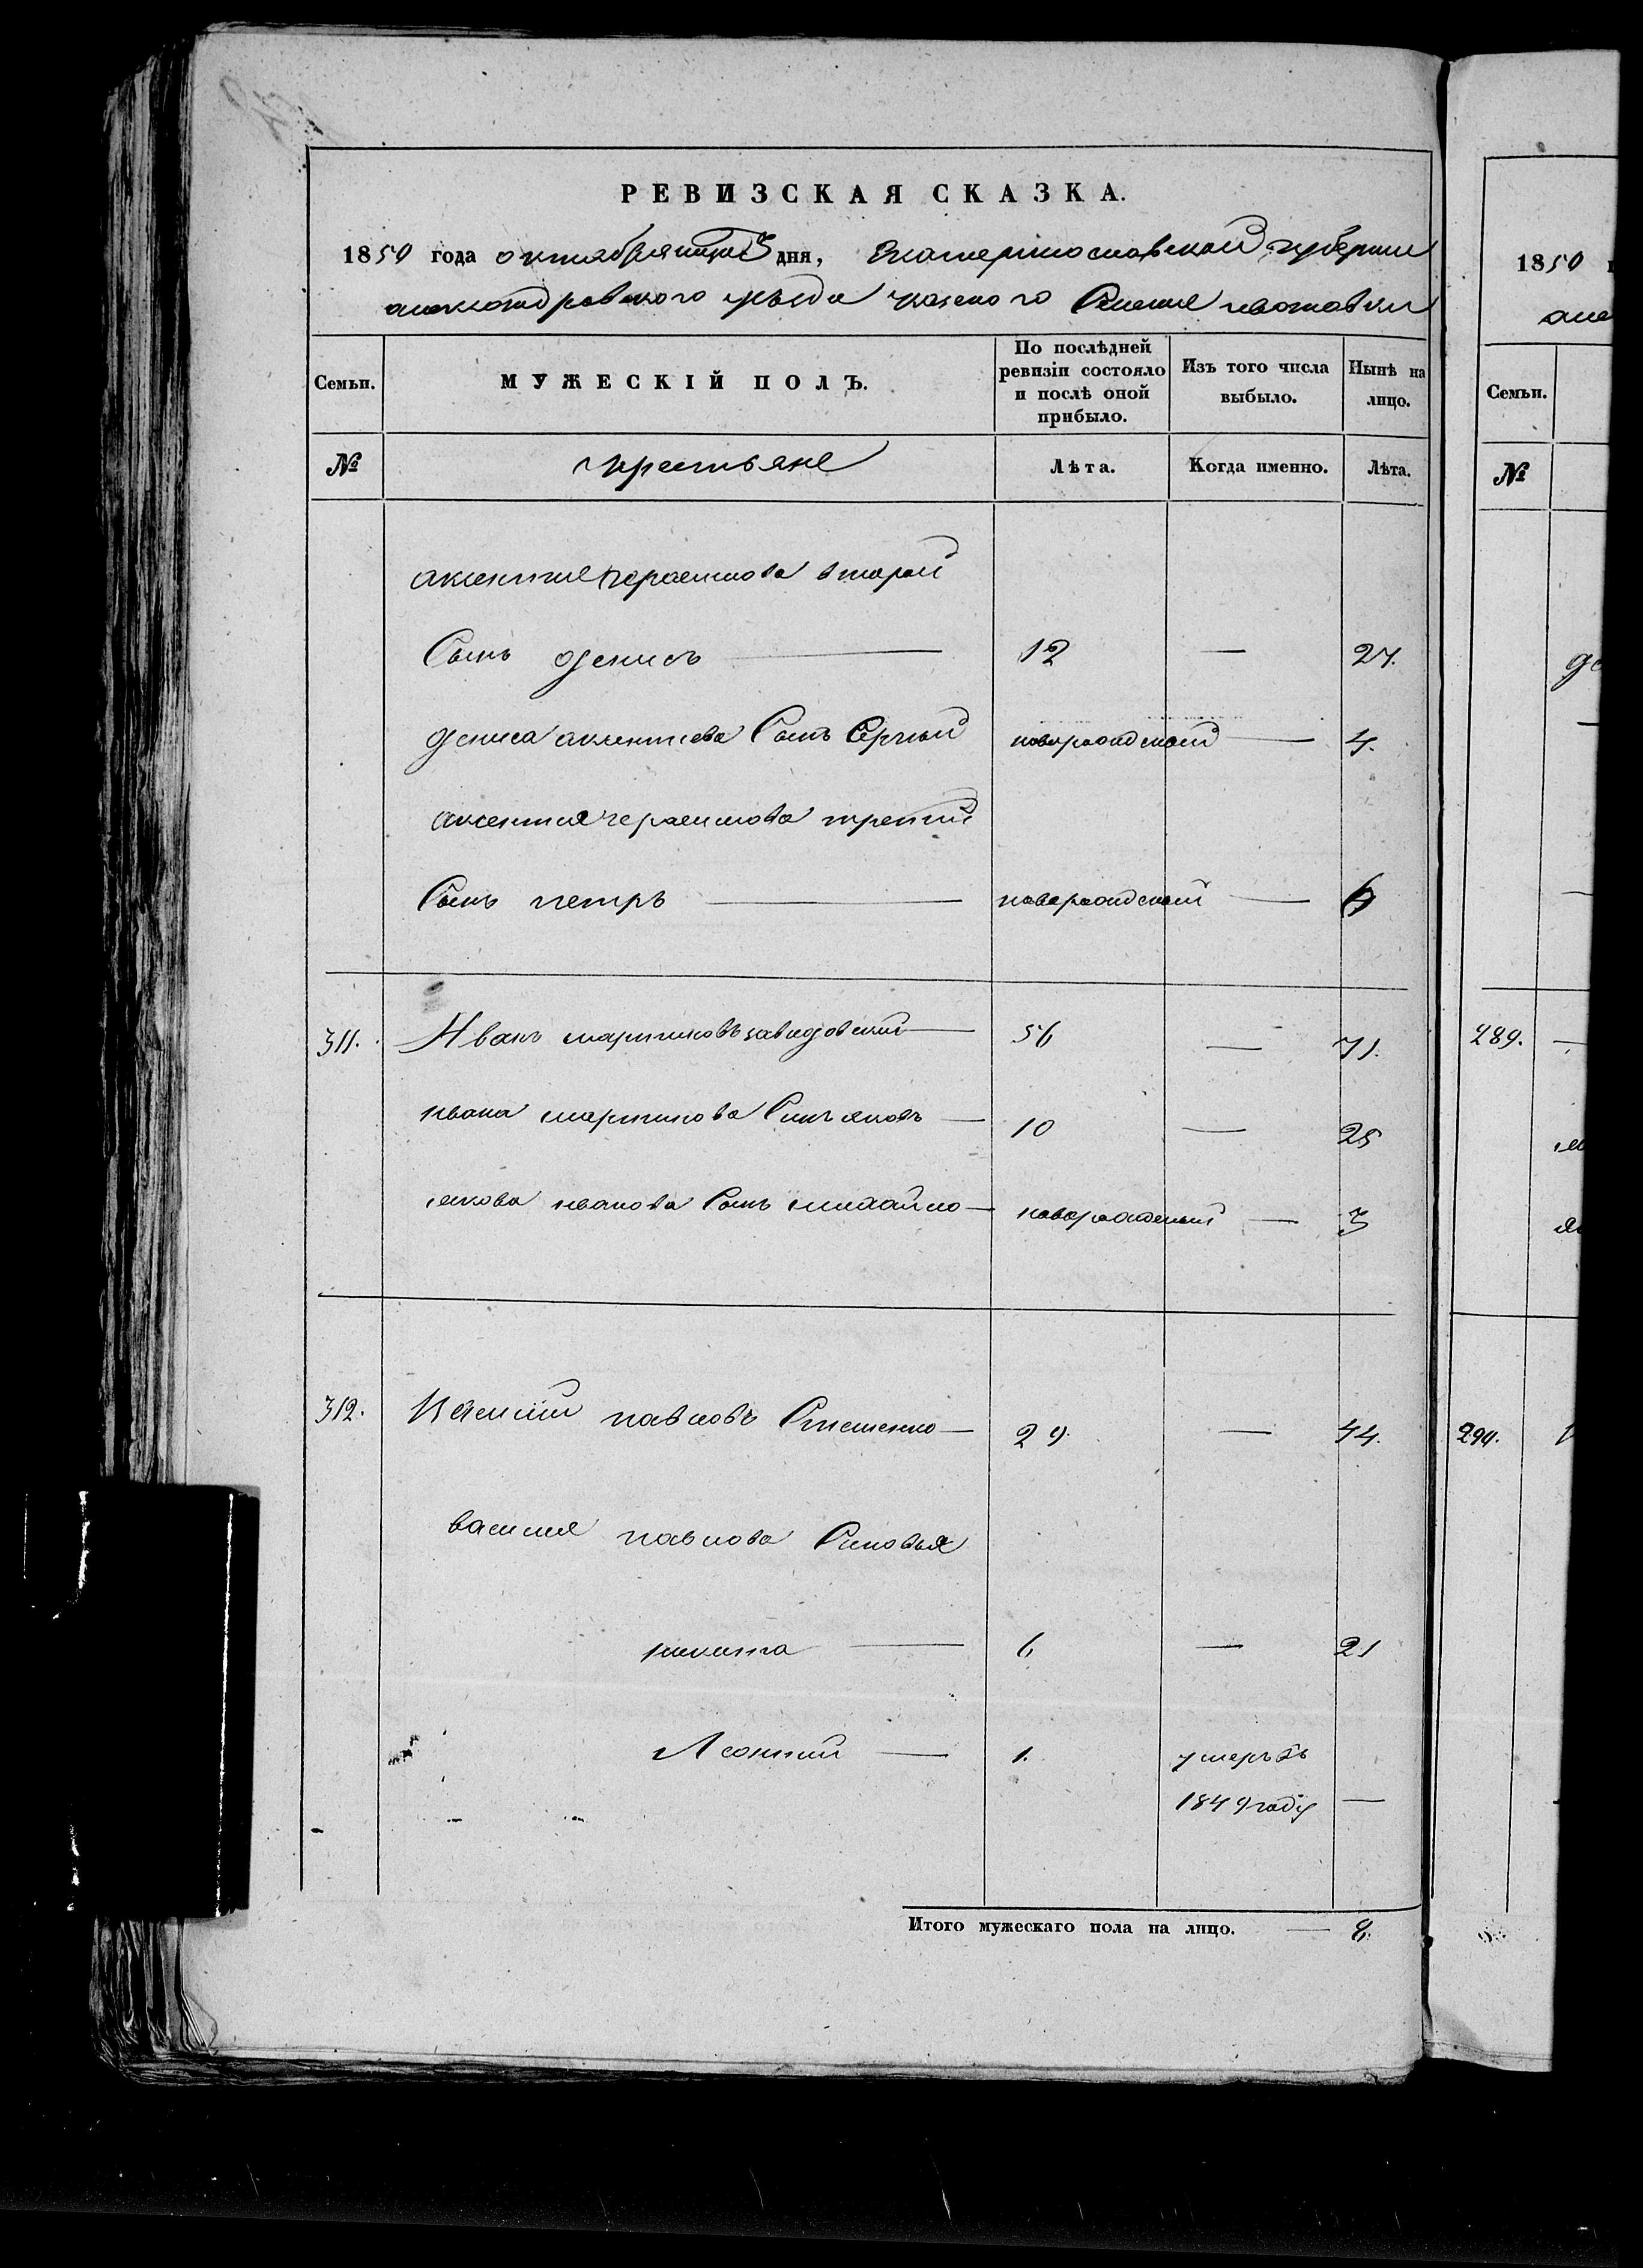 РЕВИЗСКАЯ СКАЗКА.
1850 года октября дня, Екатеринославской губернии
александровского уезда казеного Селения
Семьи.
МУЖЕСКІЙ ПОЛЪ.
По послѣдней ревизіи состояло и послѣ оной прибыло.
Изъ того числа выбыло.
Нынѣ на лицо.
№
крестьяне
Лѣта.
Когда именно.
Лѣта.
аксентия герасимова второй
Сынъ денисъ — 12 — 27.
дениса аксентиева Сынъ Сергий новорожденный — 4.
аксентия герасимова третий
Сынъ петръ — новорожденный —
311. Иванъ мартиновъ завидовский — 56 — 71.
ивана мартинова Синъ яковъ — 10 — 25
якова иванова Сынъ михайло — новорожденный — 3
312. Василий павловъ Стешенко — 29. — 44.
василия павлова Синовья
никита — 6 — 21
Леонтий — 1. умеръ въ
1849 году —
Итого мужескаго пола на лицо. — 8.
1850
Семьи.
№
289.
290.